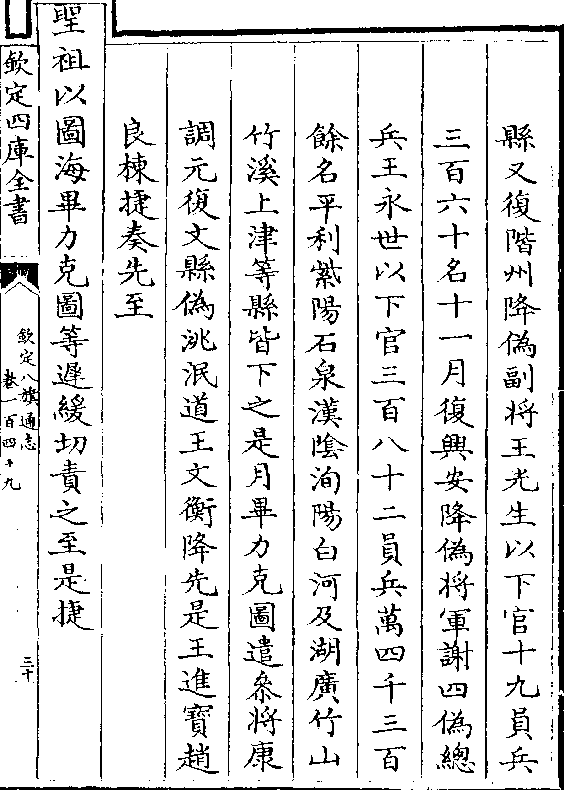 縣又復階州降偽副將王光生以下官十九員兵
三百六十名十一月復興安降偽將軍謝四偽總
兵王永世以下官三百八十二員兵萬四千三百
餘名平利紫陽石泉漢陰洵陽白河及湖廣竹山
竹溪上津等縣皆下之是月畢力克圖遣叅將康
調元復文縣偽洮泯道王文衡降先是王進寶趙
良棟捷奏先至
聖祖以圖海畢力克圖等遲緩切責之至是捷
欽定四庫全書
欽定八旗通志
卷一百四十九
三十